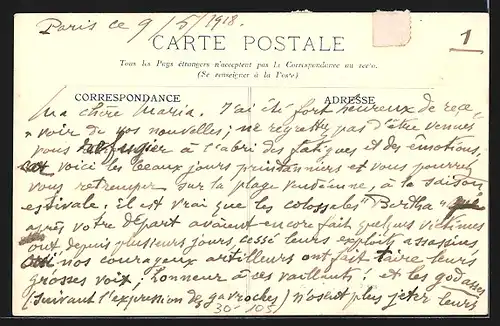 Paris ce 9/5/1918.
1
CARTE POSTALE
Tous les Pays étrangers n'acceptent pas la Correspondance au recto.
(Se renseigner à la Poste)
CORRESPONDANCE
ADRESSE
Ma chère Maria. J'ai été fort heureux de rece
voir de vos nouvelles; ne regrettez pas d'être venues
vous réfugier à l'abri des fatigues et des émotions,
voici les beaux jours printanniers et vous pourrez
vous retremper sur la plage vendéenne, à la saison
estivale. Il est vrai que les colossales "Bertha"
après votre départ avaient encore fait quelques victimes
ont depuis plusieurs jours, cessé leurs exploits assassins
nos courageux artilleurs ont fait taire leurs
grosses voix; honneur à ces vaillants! et les godasses
(suivant l'expression des gavroches) n'osent plus jeter leurs
30-105